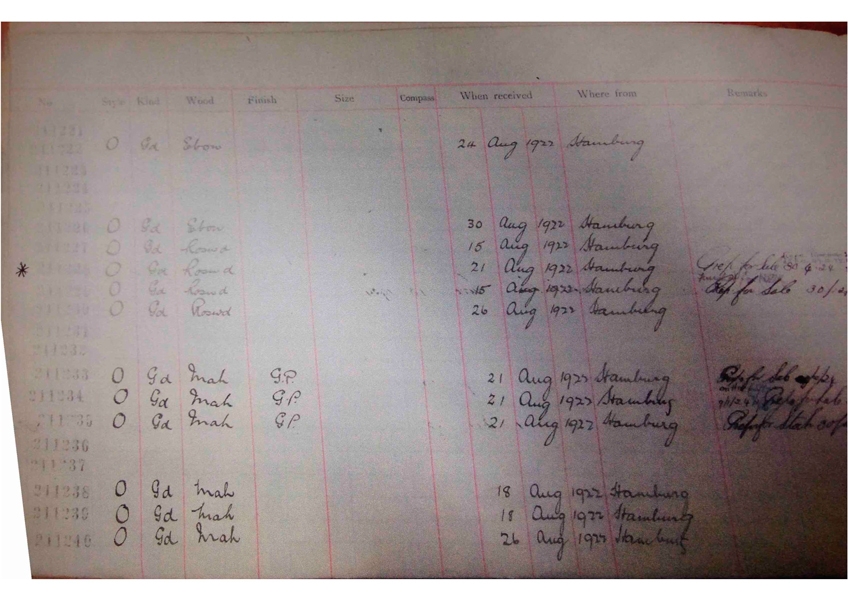 No. Style Kind Wood Finish Size Compass When received Where from Remarks
211221
O Gd Ebow 24 Aug 1922 Hamburg
211223
211224
211225
O Gd Ebow 30 Aug 1922 Hamburg
211227 O Gd Roswd 15 Aug 1922 Hamburg
* O Gd Roswd 21 Aug 1922 Hamburg Prep for Sale
O Gd Roswd 15 Aug 1922 Hamburg Prep for Sale
O Gd Roswd 26 Aug 1922 Hamburg
211231
211232
211233 O Gd Mah G.P. 21 Aug 1922 Hamburg Prep for
211234 O Gd Mah G.P. 21 Aug 1922 Hamburg
211235 O Gd Mah GP 21 Aug 1922 Hamburg
211236
211237
211238 O Gd Mah 18 Aug 1922 Hamburg
211239 O Gd Mah 18 Aug 1922 Hamburg
211240 O Gd Mah 26 Aug 1922 Hamburg